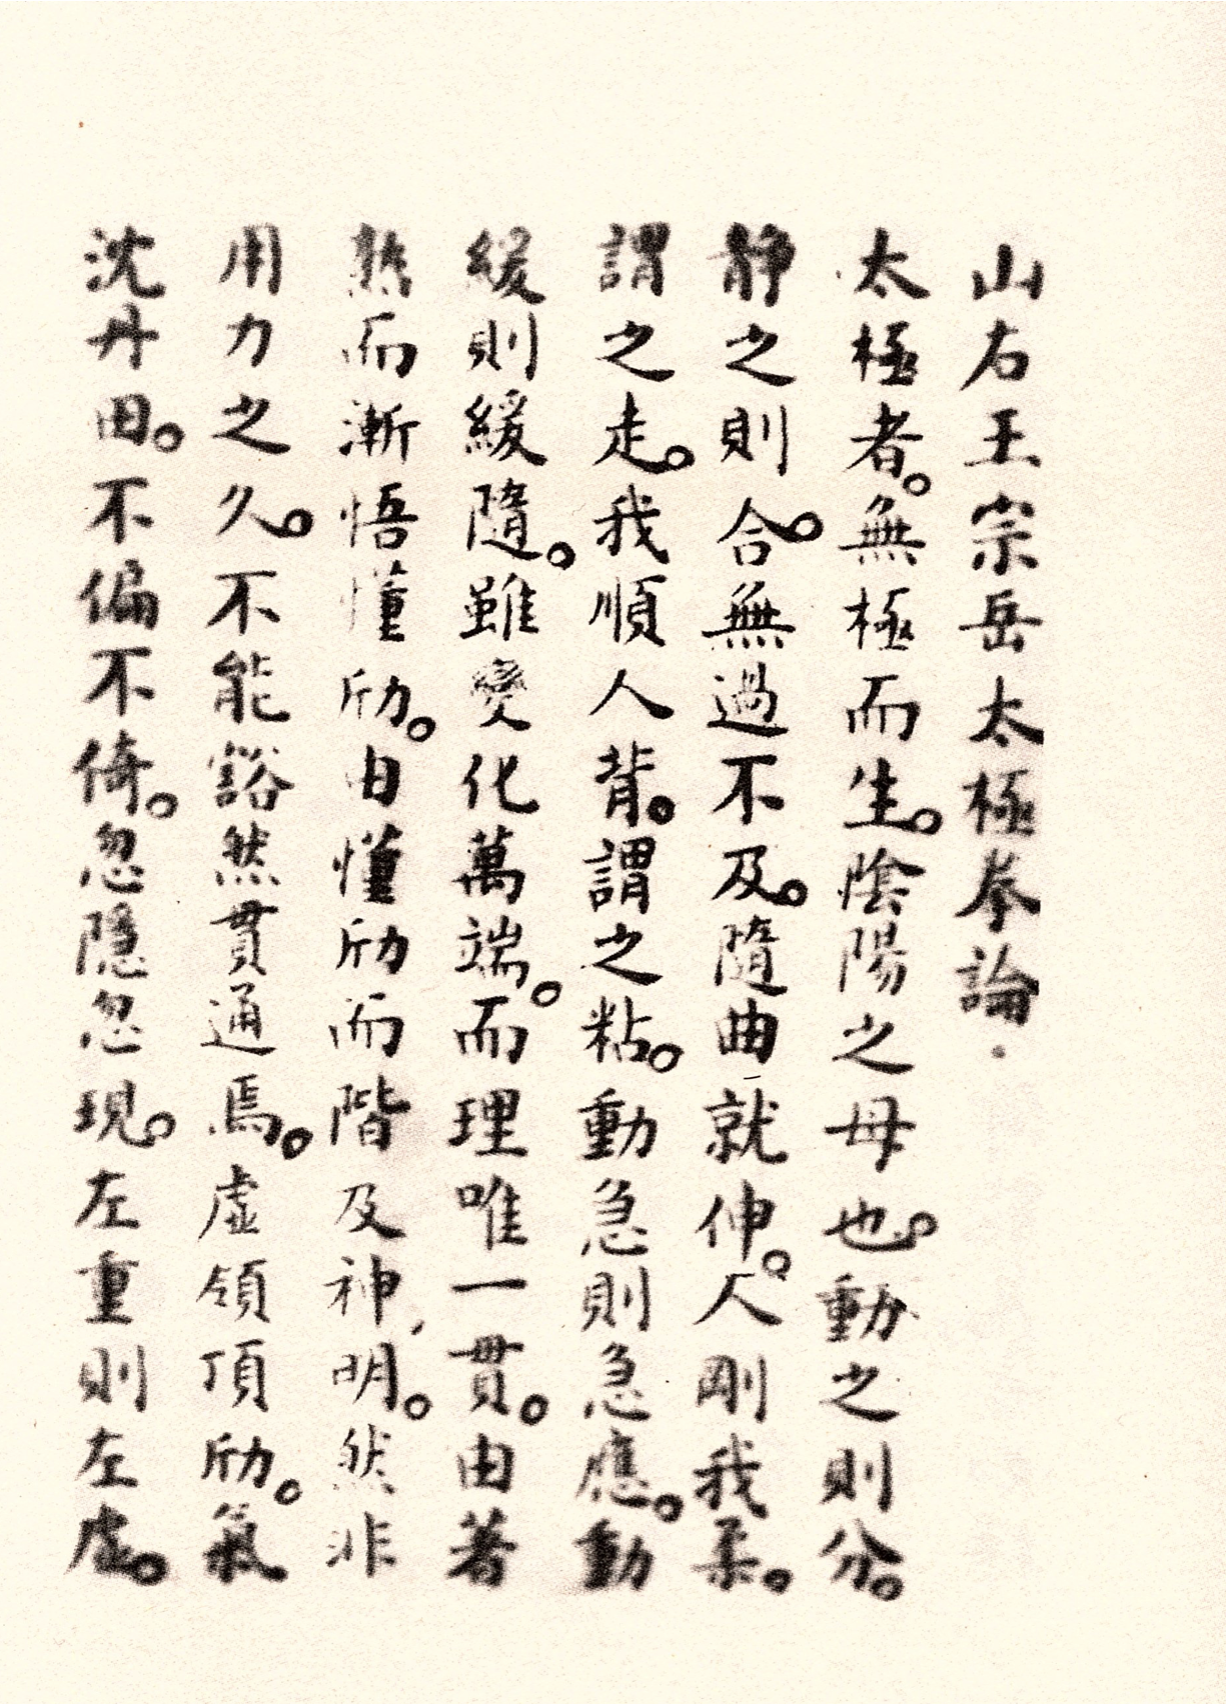 山右王宗岳太極拳論.
太極者。無極而生。陰陽之母也。動之則分。
静之則合。無過不及。隨曲就伸。人剛我柔。
謂之走。我順人背。謂之粘。動急則急應。動
緩則緩隨。雖變化萬端。而理唯一貫。由著
熟而漸悟懂劤。由懂劤而階及神明。然非
用力之久。不能豁然貫通焉。虛領頂劤。氣
沈丹田。不偏不倚。忽隱忽現。左重則左虛。